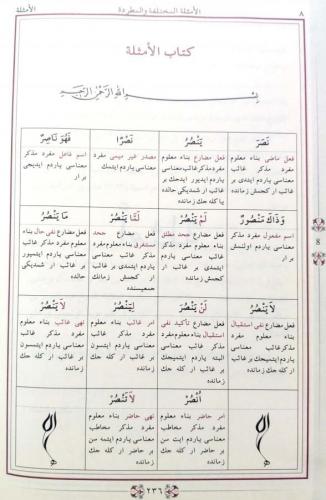 ٨
الأمثلة المختلفة والمطردة
الأمثلة
كتاب الأمثلة
بِسْمِ اللهِ الرَّحْمٰنِ الرَّحِيمِ
نَصَرَ
فعل ماضى بناء معلوم
مفرد مذكر غائب
معناسى ياردم ايتدى بر
غائب ار كجمش زمانده
يَنْصُرُ
فعل مضارع بناء معلوم
مفرد مذكر غائب معناسى
ياردم ايديور ايدجك بر
غائب ار شمديكى حالده
يا كله جك زمانده
نَصْرًا
مصدر غير ميمى مفرد
معناسى ياردم ايتمك
فَهُوَ نَاصِرٌ
اسم فاعل مفرد مذكر
معناسى ياردم ايديجى
بر ار
وَ ذَاكَ مَنْصُورٌ
اسم مفعول مفرد مذكر
معناسى ياردم اولنمش
بر ار
لَمْ يَنْصُرْ
فعل مضارع جحد مطلق
بناء معلوم مفرد مذكر
غائب معناسى ياردم
ايتمدى بر غائب ار
كجمش زمانده
لَمَّا يَنْصُرْ
فعل مضارع جحد
مستغرق بناء معلوم مفرد
مذكر غائب معناسى ياردم
ايتمدى بر غائب ار
كجمش زمانده
جميعسنده
مَا يَنْصُرُ
فعل مضارع نفى حال بناء
معلوم مفرد مذكر غائب
معناسى ياردم ايتميور
بر غائب ار شمديكى
حالده
لاَ يَنْصُرُ
فعل مضارع نفى استقبال
بناء معلوم مفرد
مذكر غائب معناسى
ياردم ايتميجك بر غائب
ار كله جك زمانده
لَنْ يَنْصُرَ
فعل مضارع تأكيد نفى
استقبال بناء معلوم مفرد
مذكر غائب معناسى
البته ياردم ايتميجك
بر غائب ار كله جك
زمانده
لِيَنْصُرْ
امر غائب بناء معلوم
مفرد مذكر غائب
معناسى ياردم ايتسون
بر غائب ار كله جك
زمانده
لاَ يَنْصُرْ
نهى غائب بناء معلوم
مفرد مذكر غائب
معناسى ياردم ايتمسون
بر غائب ار كله جك
زمانده
اُنْصُرْ
امر حاضر بناء معلوم
مفرد مذكر مخاطب
معناسى ياردم ايت سن
بر حاضر ار كله جك
زمانده
لاَ تَنْصُرْ
نهى حاضر بناء معلوم
مفرد مذكر مخاطب
معناسى ياردم ايتمه سن
بر حاضر ار كله جك
زمانده
8
٢٣٦